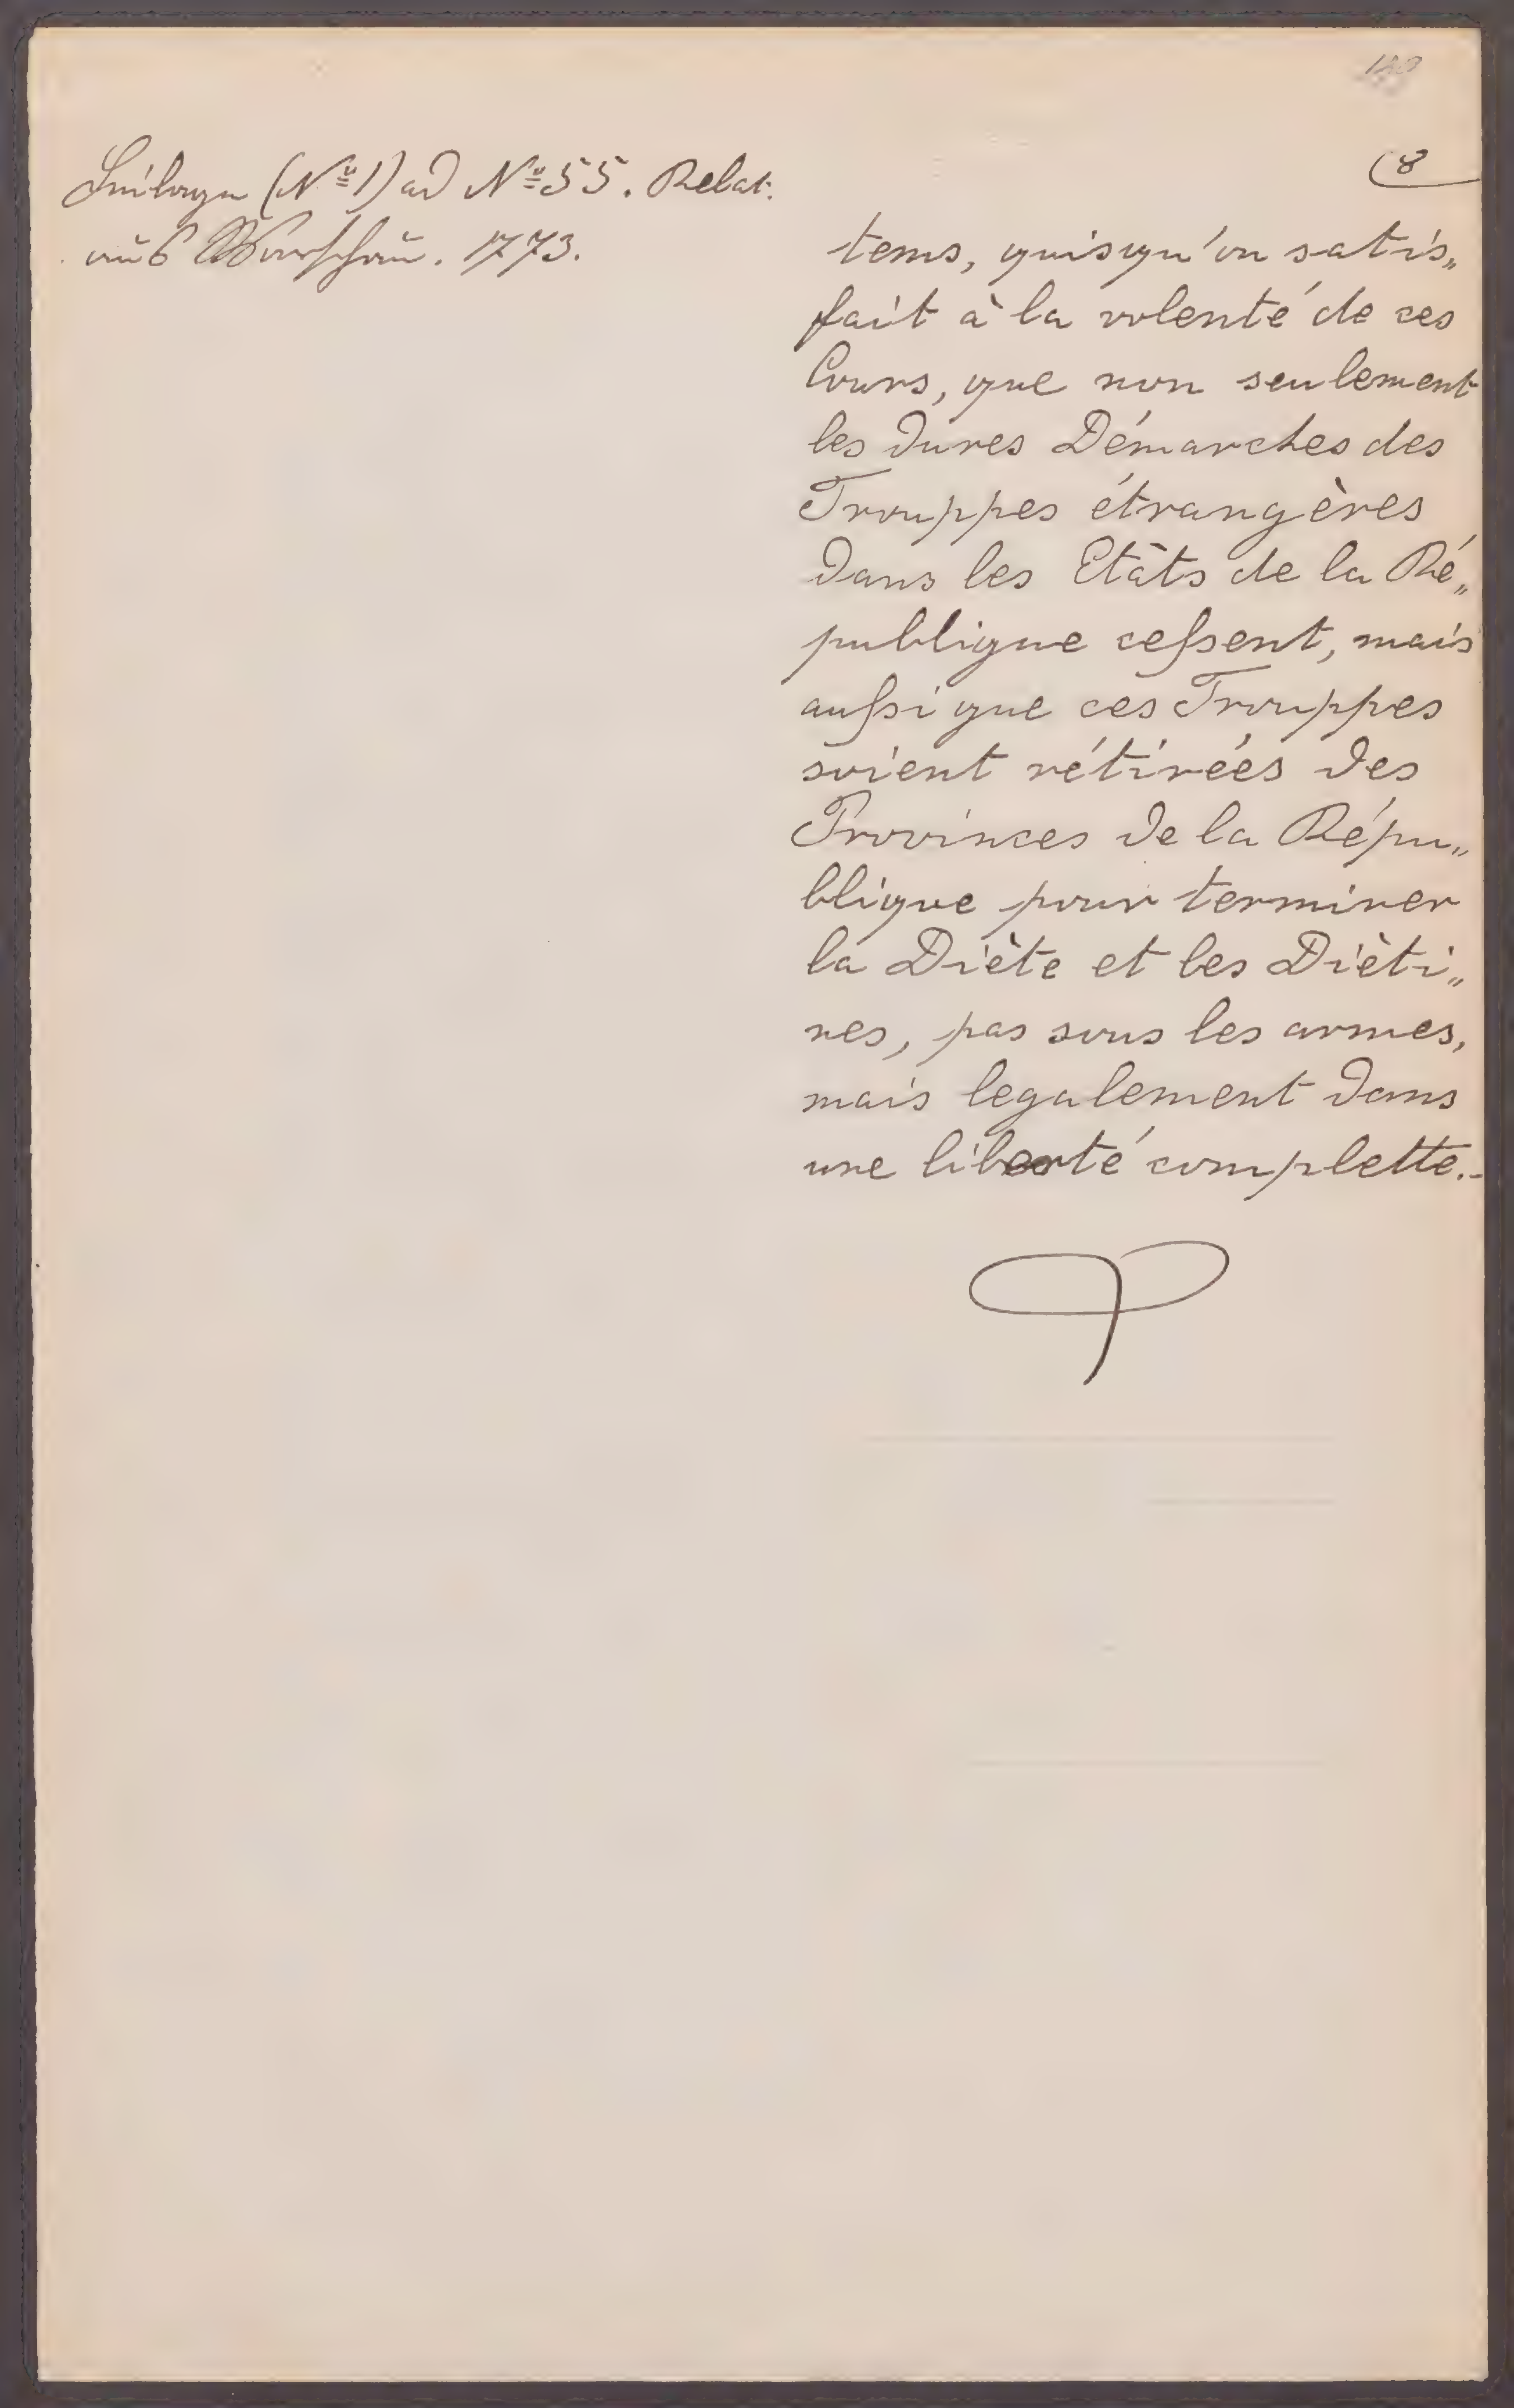 (8
Beilage (Nº 1) ad Nº 55. Relat:
auß Warschau. 1773.
tems, quisqu'on satis„
fait à la volenté de ces
Cours, que non seulement
les dures Démarches des
Trouppes étrangères
dans les Etâts de la Ré„
publique ceſsent, mais
auſsi que ces Trouppes
soient rétirées des
Provinces de la Répu„
blique pour terminer
la Diète et les Dièti„
nes, pas sous les armes,
mais legalement dans
une liberté complette.-